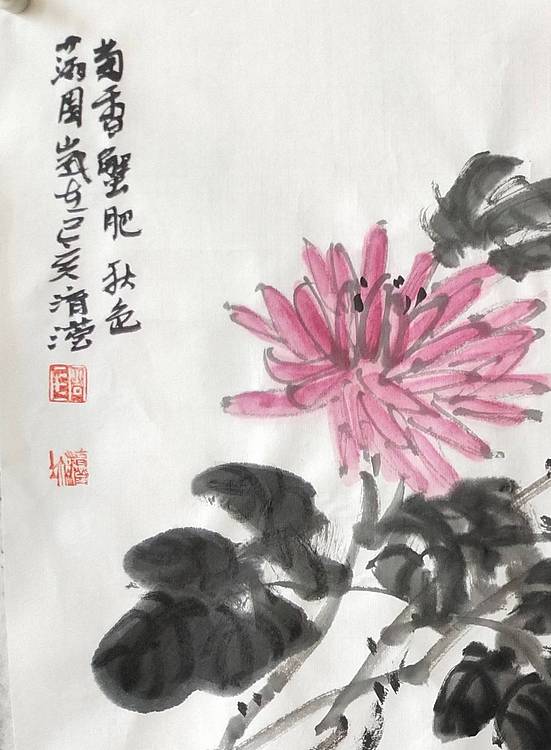 菊香蟹肥秋色
满园岁在己亥清滢